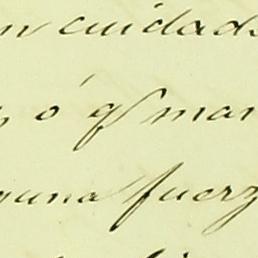 n cuidad
ó qe man
guna fuerz